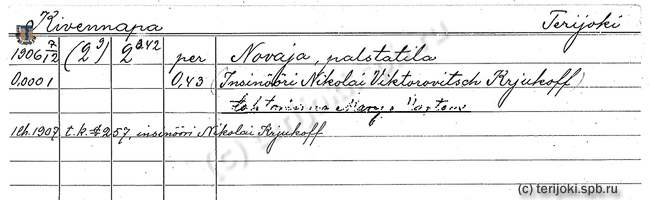 Kivennapa Terijoki
1906 7/12 (2⁹) 2²⁴² per Novaja, palstatila
0,0001 0,43 (Insinööri Nikolai Viktorovitsch Krjukoff)
1 lh. 1907 t.k. § 257, insinööri Nikolai Krjukoff
(c) terijoki.spb.ru